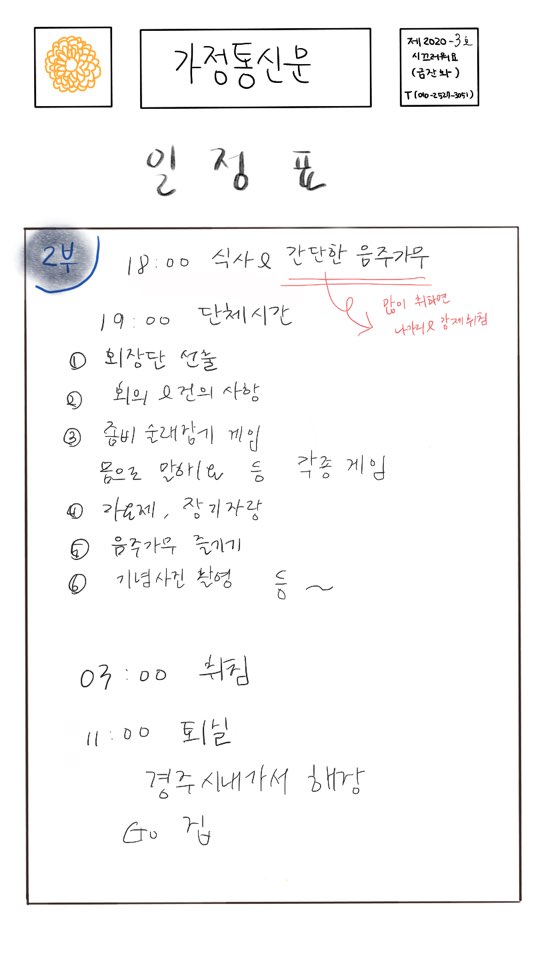 가정통신문
제 2020-3호
시끄러워요
(금잔화)
T(010-2527-3051)
일정표
2부
18:00 식사 & 간단한 음주가무
많이 취하면
나가리 & 강제취침
19:00 단체시간
① 회장단 선출
② 회의 & 건의 사항
③ 좀비 술래잡기 게임
몸으로 말해요 등 각종 게임
④ 가요제, 장기자랑
⑤ 음주가무 즐기기
⑥ 기념사진 촬영 등 ~
03:00 취침
11:00 퇴실
경주시내가서 해장
Go 집